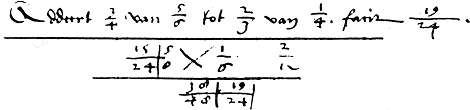 Addeert 3/4 van 5/6 tot 2/3 van 1/4. facit 19/24.
15/24 5/6 1/6 2/12
38/48 19/24